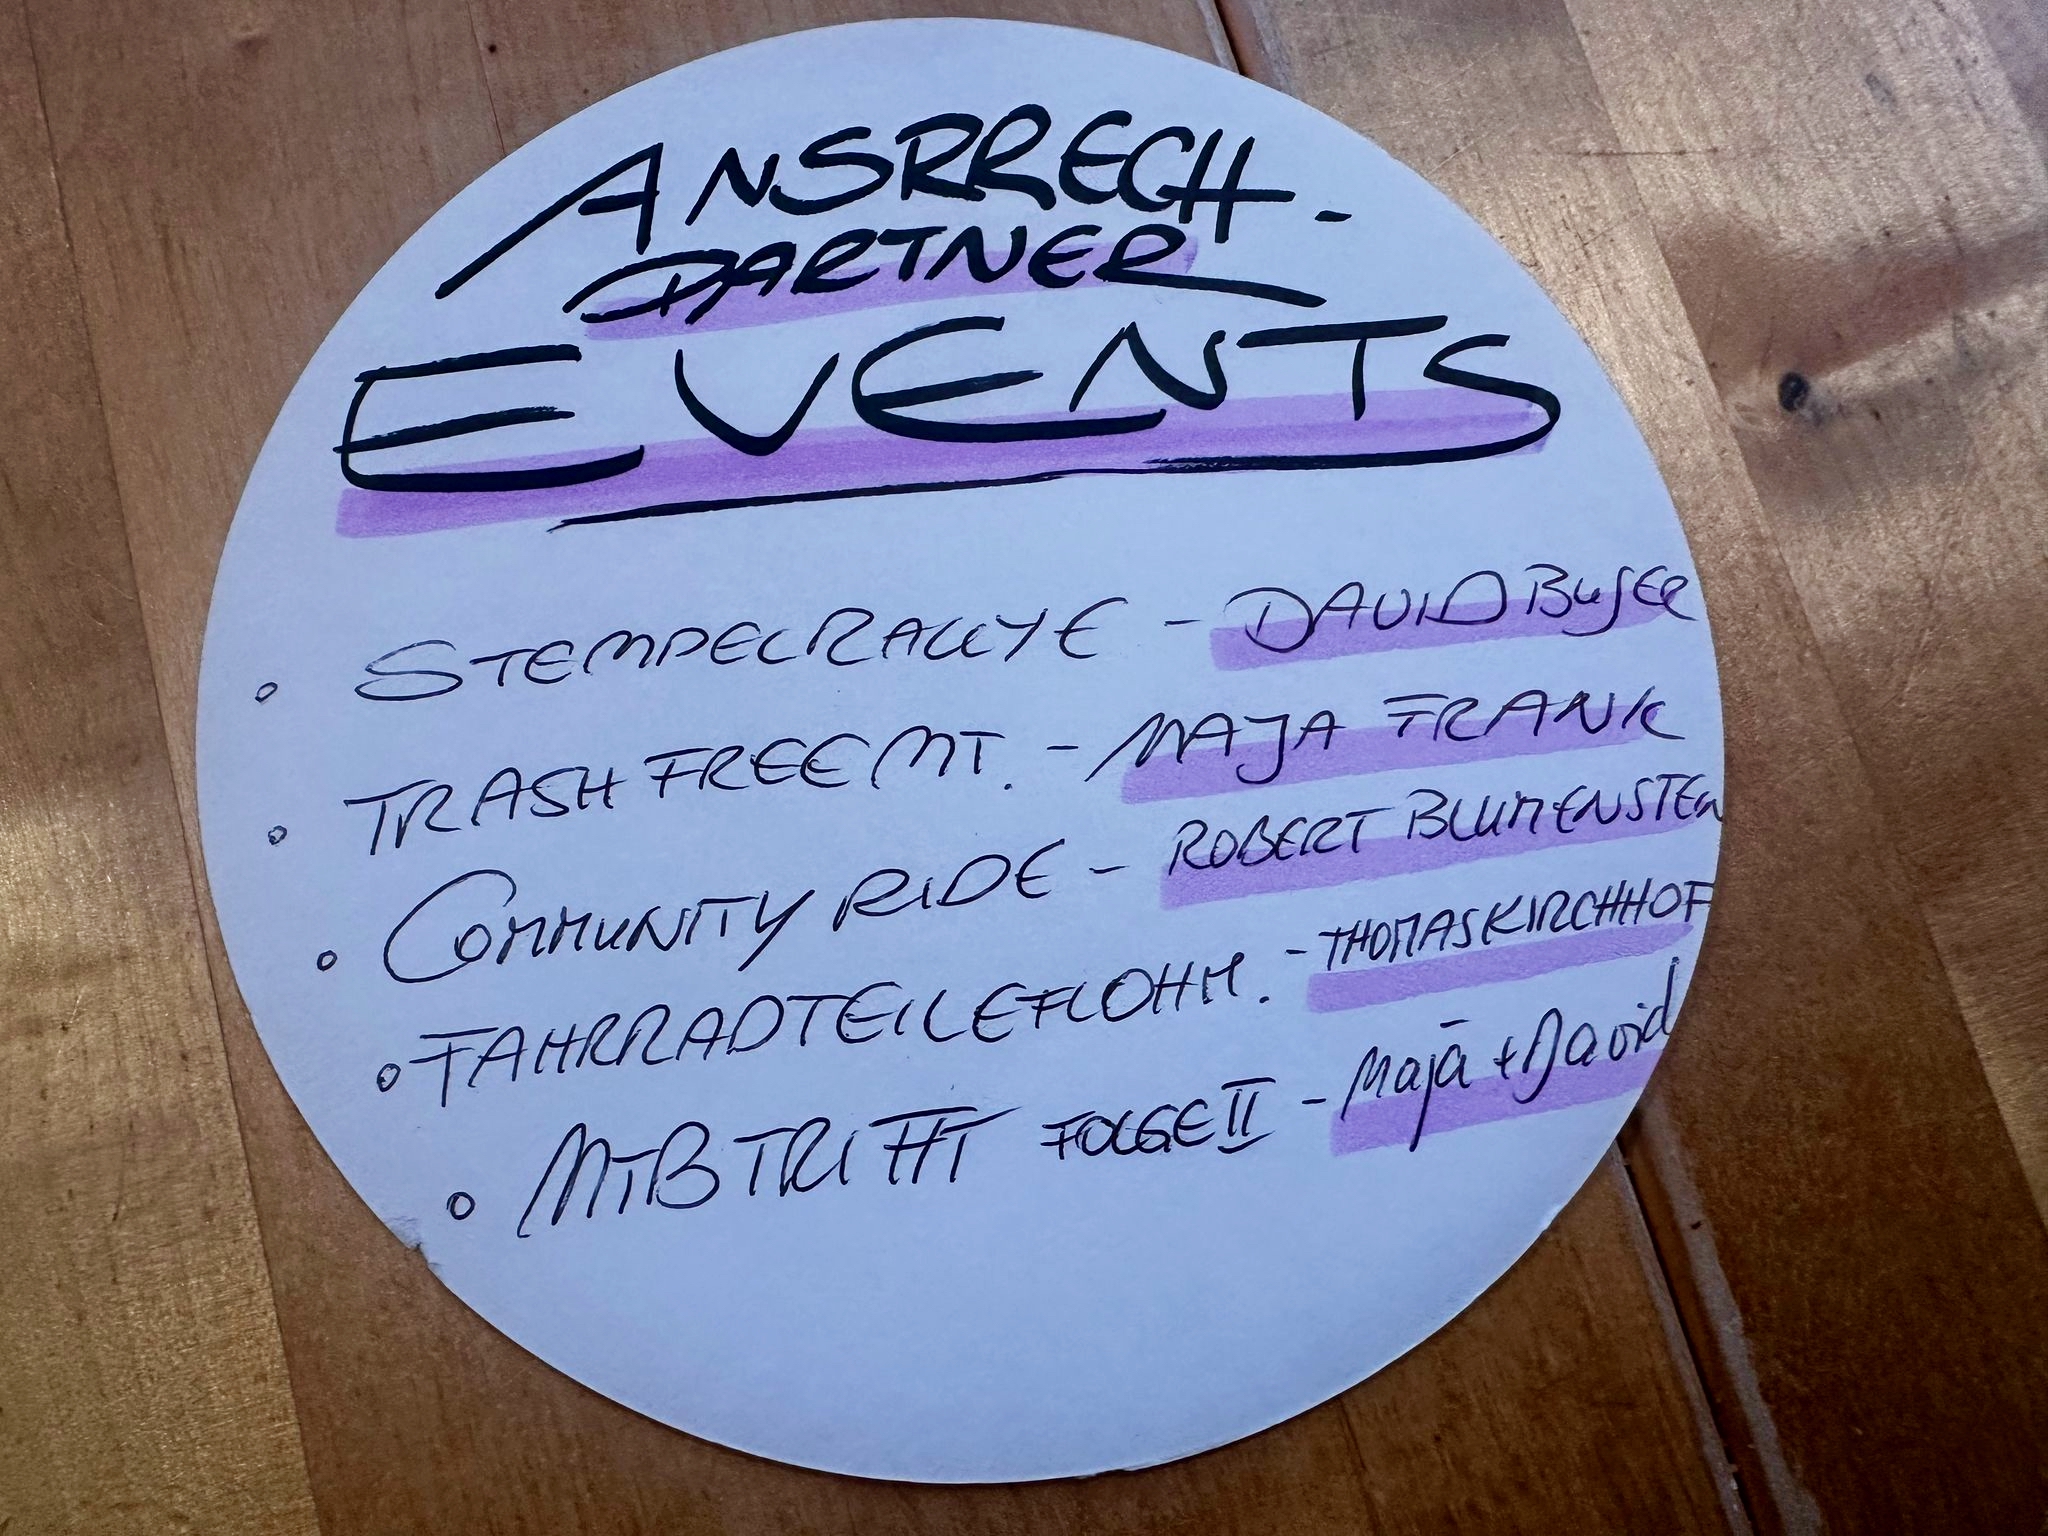 ANSPRECH-
PARTNER
EVENTS
• STEMPELRALLYE - DAVID BUSER
• TRASH FREE MT. - MAJA FRANK
• COMMUNITY RIDE - ROBERT BLUMENSTEIN
• FAHRRADTEILEFLOHM. - THOMAS KIRCHHOF
• MTB TRIFFT FOLGE II - Maja + David